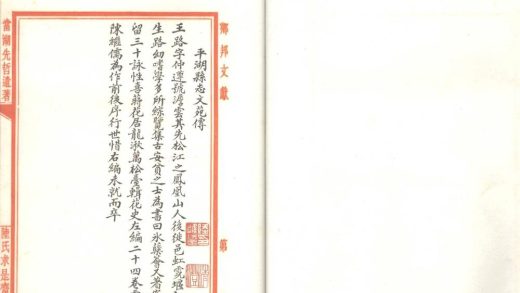 鄉邦文獻
第
平湖縣志文苑傳
王路字仲遵號澹雲其先松江之鳳凰山人後徙邑虹霓堰
生路幼嗜學多所綜覽集古安貧之士為書曰氷櫱會又著
留三十詠性喜蒔花居龍湫萬松臺輯花史左編二十四卷
陳繼儒為作前後序行世惜右編未就而卒
當湖先哲遺著
陳氏求是齋